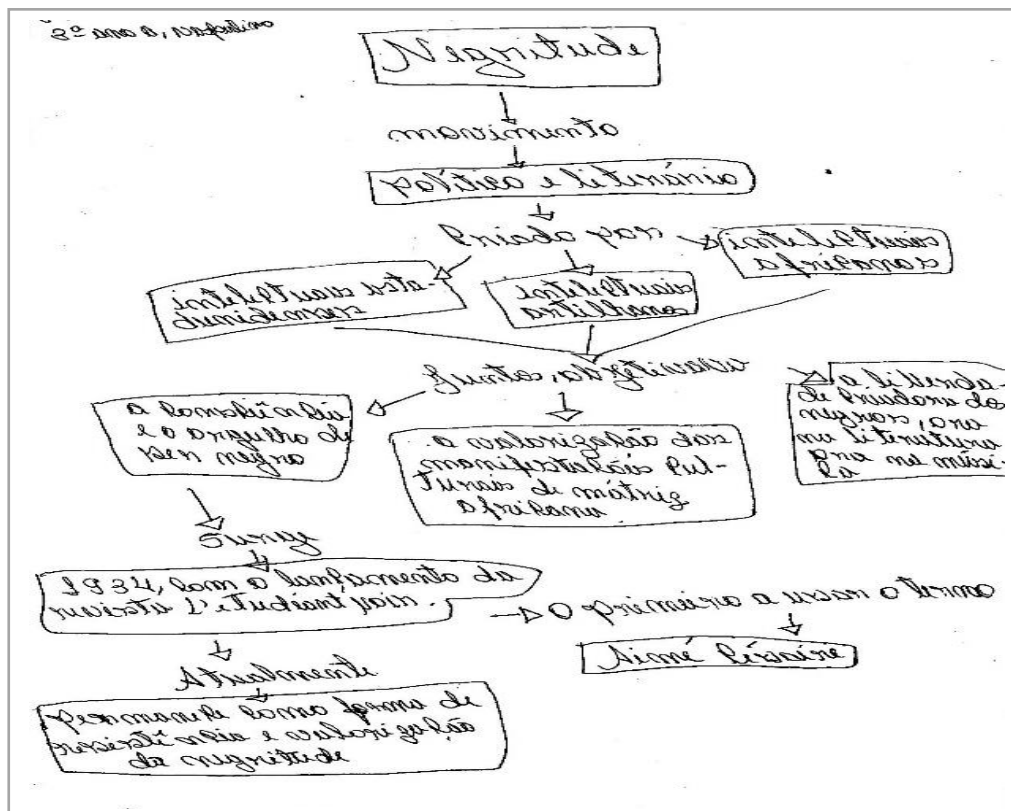 3º ano a,
Negritude
movimento
político e literário
criado por
intelectuais
africanos
intelectuais esta-
dunidenses
intelectuais
antilhanos
juntos, objetivavam
a consciência
e o orgulho de
ser negro
a valorização das
manifestações cul-
turais de mátriz
africana
a liberda-
de criadora dos
negros, ora
na literatura
ora na músi-
ca
surge
1934, com o lançamento da
revista L'étudiant noir.
O primeiro a usar o termo
Aimé Césaire
Atualmente
permanece como forma de
resistência e valorização
da negritude